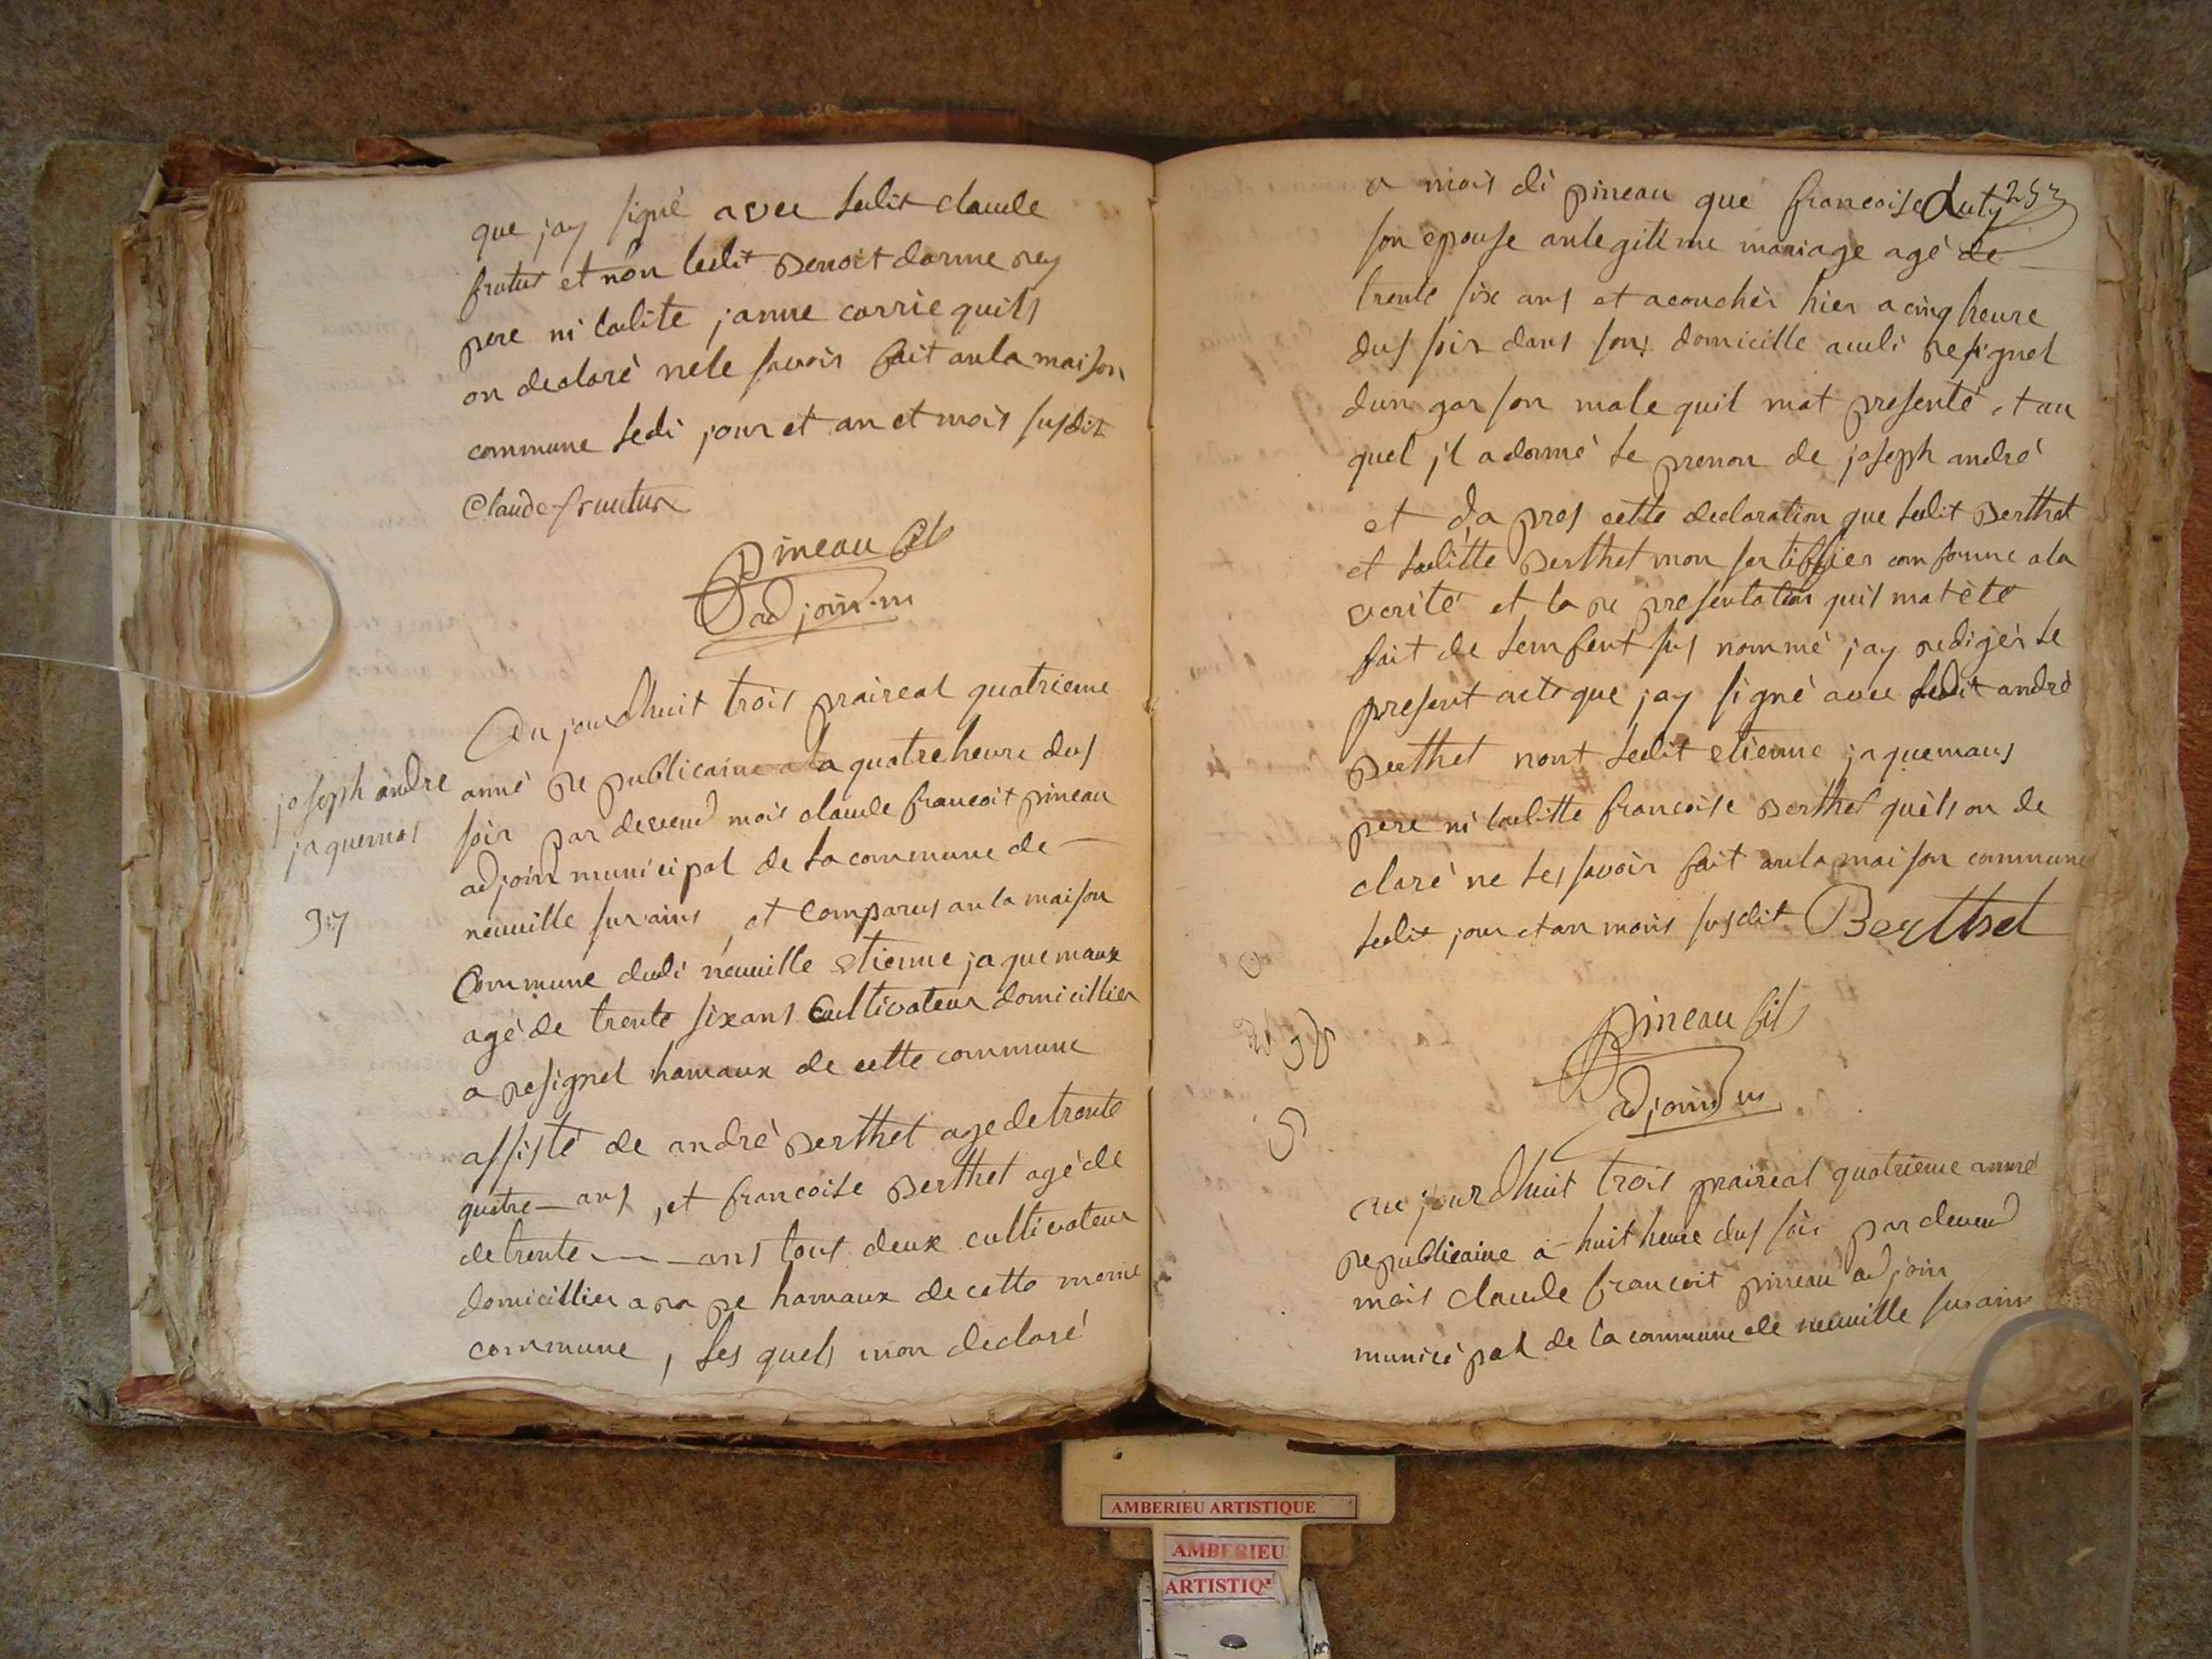 que jay signé avec ledit claude
frutus et non ledit Benoit darmerey
pere ni ladite janne carrie quils
on declaré nele savoir fait anla maison
commune ledi jour et an et mois susdit
Claude frutus
pineau fils
adjoin m
Au jourdhuit trois praireal quatrieme
joseph andre
jaquemos
37
anné republicaine a la quatre heure dus
soir par devend mois claude francoit pineau
adjoin municipal de la commune de
neuville sur ains, et comparus an la maison
Commune dudi neuville etienne jaquemaux
agé de trente six ans Cultivateur domicillier
a resignel hamaux de cette commune
assisté de andré Berthet age de trente
quatre ans, et francoise Berthet agé de
de trente ans tous deux cultivateur
domicillier a rape hamaux de cette meme
commune, les quels mon declaré
253
a mois di pineau que francoise duty
son epouse anlegittme mariage agé de
trente six ans et acouchér hier a cinq heure
dus soir dans sons domicille audi resignel
dun garson male quil mat presenté et au
quel jl a donné le prenon de joseph andré
et da pres cette declaration que ledit Berthet
et laditte Berthet mon sertiffier comforme ala
verité et la representation quil mat été
fait de lemfent sus nommé jay redigér le
present acte que jay signé avec ledit andrè
Berthet nont ledit etienne jaquemaus
pere ni laditte francoise Berthet quils on de
claré ne les savoir fait anla maison commune
ledit jour et an mois susdit Berthet
pineau fils
adjoin m
38
au jourdhuit trois praireal quatrieme anné
republicaine a huit heure dus soir par devend
mois claude francoit pineau adjoin
municipal de la commune de neuville sur ains
AMBERIEU ARTISTIQUE
AMBERIEU
ARTISTIQ